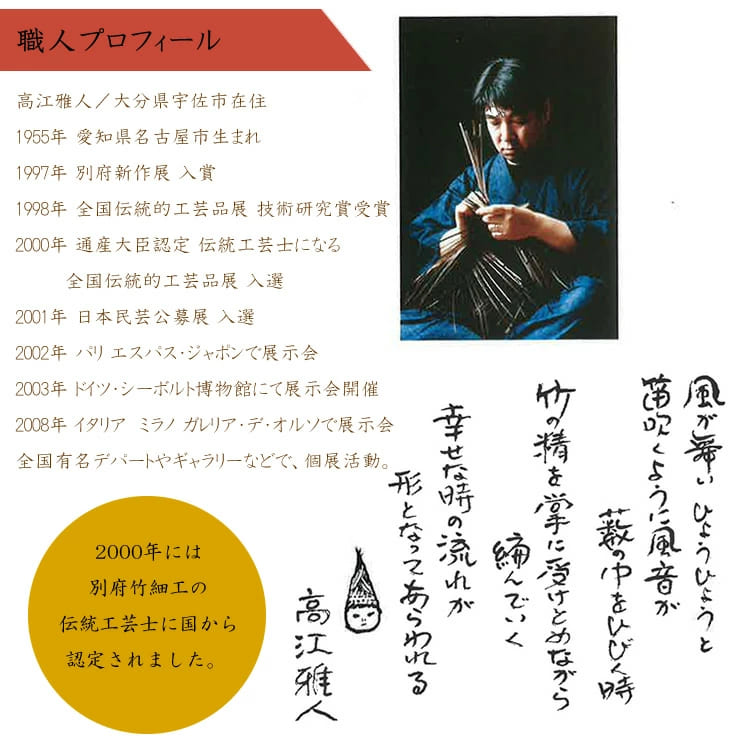 職人プロフィール
高江雅人／大分県宇佐市在住
1955年 愛知県名古屋市生まれ
1997年 別府新作展 入賞
1998年 全国伝統的工芸品展 技術研究賞受賞
2000年 通産大臣認定 伝統工芸士になる
全国伝統的工芸品展 入選
2001年 日本民芸公募展 入選
2002年 パリ エスパス・ジャポンで展示会
2003年 ドイツ・シーボルト博物館にて展示会開催
2008年 イタリア ミラノ ガレリア・デ・オルソで展示会
全国有名デパートやギャラリーなどで、個展活動。
2000年には
別府竹細工の
伝統工芸士に国から
認定されました。
風が舞い ひょうひょうと
笛吹くように風音が
薮の中をひびく時
竹の精を掌に受けとめながら
編んでいく
幸せな時の流れが
形となってあらわれる
高江雅人